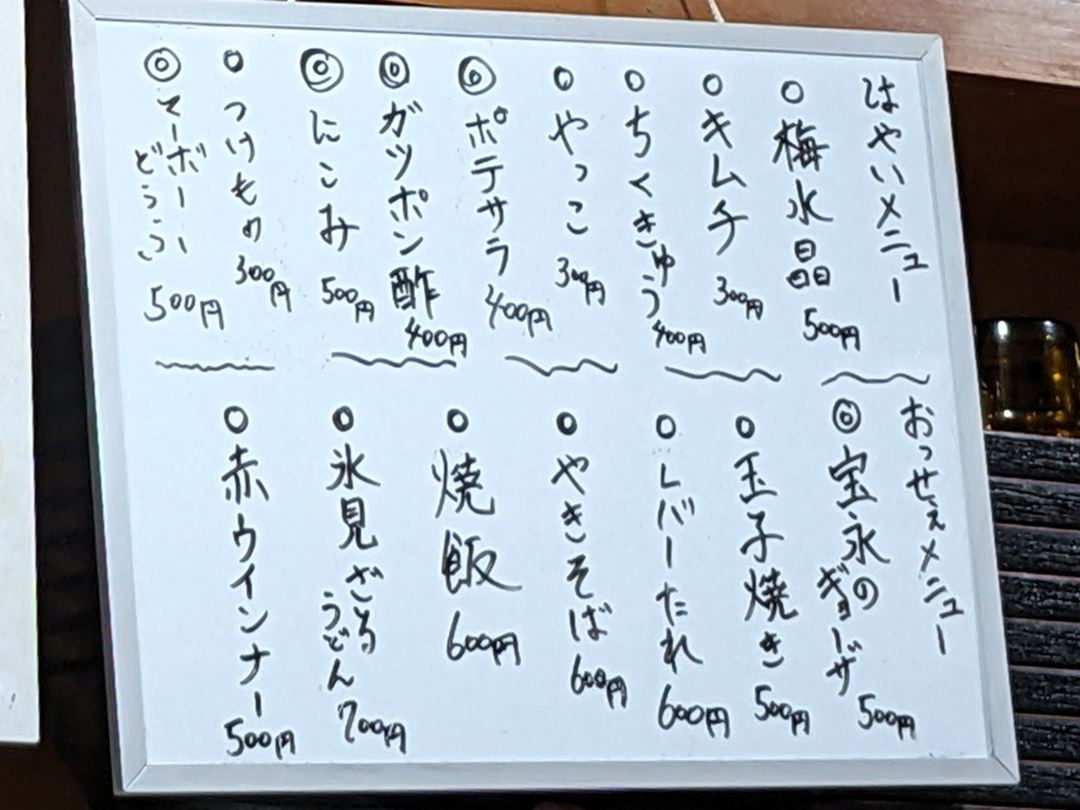 はやいメニュー
○梅水晶 500円
○キムチ 300円
○ちくきゅう 400円
○やっこ 300円
◎ポテサラ 400円
◎ガツポン酢 400円
◎にこみ 500円
○つけもの 300円
◎マーボーどうふ 500円
おっせぇメニュー
◎宝永のギョーザ 500円
○玉子焼き 500円
○レバーたれ 600円
○やきそば 600円
○焼飯 600円
○氷見ざるうどん 700円
○赤ウインナー 500円